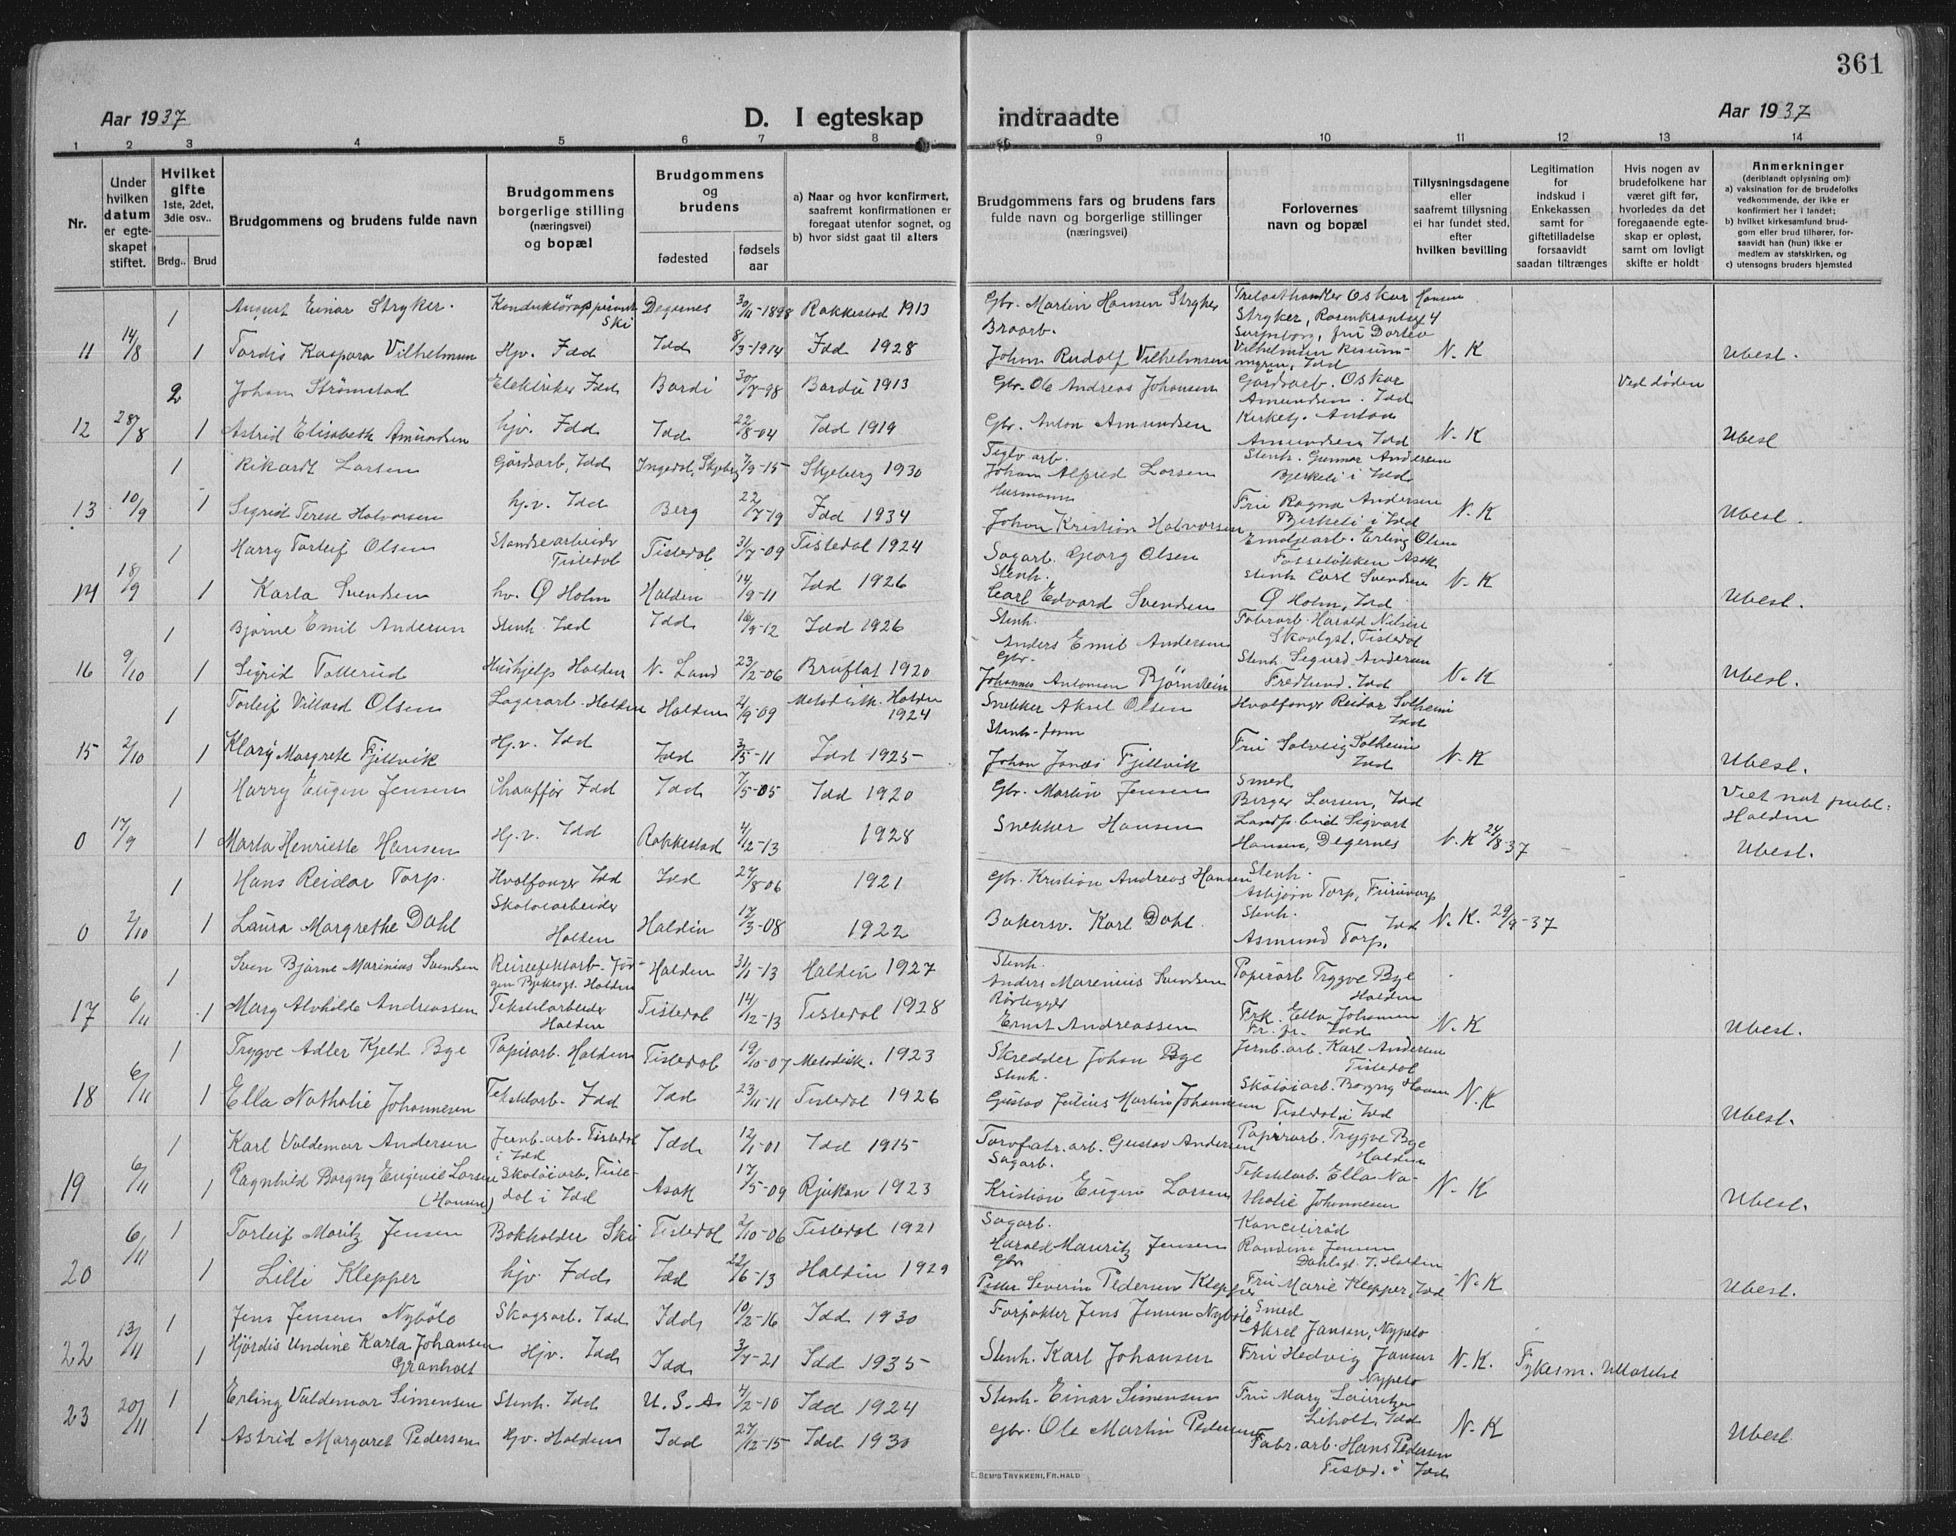 361
Aar 1937
D. I egteskap indtraadte
Aar 1937
1 2 3 4 5 6 7 8 9 10 11 12 13 14
Nr.
Under hvilken datum er egteskapet stiftet.
Hvilket gifte 1ste, 2det, 3die osv..
Brdg.. Brud
Brudgommens og brudens fulde navn
Brudgommens borgerlige stilling (næringsvei) og bopæl
Brudgommens og brudens
fødested
fødsels aar
a) Naar og hvor konfirmert, saafremt konfirmationen er foregaat utenfor sognet, og
b) hvor sidst gaat til alters
Brudgommens fars og brudens fars fulde navn og borgerlige stillinger (næringsvei)
Forlovernes navn og bopæl
Tillysningsdagene eller saafremt tillysning ei har fundet sted, efter hvilken bevilling
Legitimation for indskud i Enkekassen samt for giftetilladelse forsaavidt saadan tiltrænges
Hvis nogen av brudefolkene har været gift før, hvorledes da det foregaaende egteskap er opløst, samt om lovligt skifte er holdt
Anmerkninger (deriblandt oplysning om):
a) vaksination for de brudefolks vedkommende, der ikke er konfirmert her i landet;
b) hvilket kirkesamfund brudgom eller brud tilhører, forsaavidt han (hun) ikke er medlem av statskirken, og
c) utensogns bruders hjemsted
1 August Einar Stryker. Ski 30/11-1898 Rakkestad 1913 Gbr. Martin Hansen Stryker Trelasthandler Oskar Hansen
Stryker, Rosenkrantzgt 4
11 14/8 1 Tordis Kaspara Vilhelmsen Hjv. Idd Idd 8/3-1914 Idd 1928 Braarb. Johan Rudolf Vilhelmsen N.K Ubest.
2 Johan Strømstad Elektriker Idd Bardi 30/7-98 Bardu 1913 Gbr. Ole Andreas Johansen Gårdsarb. Oskar Ved døden
Amundsen. Idd
12 28/8 1 Astrid Elisabeth Amundsen hjv. Idd Idd 22/8-04 Idd 1919 Gbr. Anton Amundsen Kirketj. Anton
Amundsen Idd N.K Ubest
1 Rikardt Larsen Gårdsarb. Idd Ingedal, Skjeberg 7/9-15 Skjeberg 1930 Johan Alfred Larsen Stenh. Gunnar Andersen
Bjerkeli i Idd
13 10/9 1 Sigrid Terese Halvorsen hjv. Idd Berg 22/7-19 Idd 1934 Husmann Johan Kristian Halvorsen Fru Ragna Andersen
Bjerkeli i Idd N.K Ubest.
1 Harry Torleif Olsen Tistedal Tistedal 31/7-09 Tistedal 1924 Sagarb. Georg Olsen Emaljearb. Erling Olsen
Fosseløkken Asak
14 18/9 1 Karla Svendsen hv. Ø Holm Halden 14/9-11 Idd 1926 Stenh. Carl Edvard Svendsen Stenh. Carl Svendsen
Ø Holm, Idd N.K Ubest.
1 Bjarne Emil Andersen Stenh. Idd Idd 16/9-12 Idd 1926 Stenh. Anders Emil Andersen Fabrarb. Harald Nilsen
Skovlgt. Tistedal
16 9/10 1 Sigrid Tollerud Hushjelp Halden N. Land 23/2-06 Bruflat 1920 Gbr. Johannes Antonsen Bjørnstein Stenh. Sigurd Andersen
Fredlund. Idd N.K Ubest.
1 Torleif Villard Olsen Lagerarb. Halden Halden 2/9-09 Metodistk. Halden 1924 Snekker Aksel Olsen Hvalfanger Reidar Solheim
Idd
15 2/10 1 Klary Margrete Fjellvik Hj.v. Idd Idd 3/5-11 Idd 1925 Stenh.form Johan Jonas Fjellvik Fru Solveig Solheim
Idd N.K Ubest.
1 Harry Eugen Jensen Chauffør Idd Idd 7/5-05 Idd 1920 Gbr. Martin Jensen Smed
Berger Larsen, Idd Halden
0 17/9 1 Marta Henriette Hansen Hj.v. Idd Rakkestad 4/12-13 1928 Snekker Hansen Sigvart
Hansen, Degernes N.K 24/8-37 Ubest.
1 Hans Reidar Torp. Hvalfanger Idd Idd 27/8-06 1921 Gbr. Kristian Andreas Hansen Stenh.
Asbjørn Torp,
Idd
0 2/10 1 Laura Margrethe Dahl Skotøiarbeider Halden Halden 17/3-08 1922 Bakersv. Karl Dahl. Stenh.
Asmund Torp, N.K. 29/9-37
1 Sven Bjarne Marinius Svendsen Halden Halden 31/1-13 Halden 1927 Stenh. Anders Marenius Svendsen Papirarb Trygve Bye
Halden
17 6/11 1 Mary Alvhilde Andreassen Tekstilarbeider Halden Tistedal 14/12-13 Tistedal 1928 Rørlegger Ernst Andreassen Frk. Ella Johansen
Idd N.K Ubest.
1 Trygve Adler Kjeld Bye Papirarb. Halden Tistedal 19/10-07 Metodistk. 1923 Skredder Johan Bye Jernb.arb. Karl Andersen
Tistedal
18 6/11 1 Ella Nathalie Johannesen Tekstilarb. Idd Idd 23/11-11 Tistedal 1926 Stenh. Gustav Julius Martin Johannesen Skotøiarb. Borgny Hansen
Tistedal i Idd N.K Ubest.
1 Karl Valdemar Andersen Jernb.arb. Tistedal i Idd Idd 12/1-01 Idd 1915 Torvfabr.arb. Gustav Andersen Papirarb. Trygve Bye
Halden
19 6/11 1 Ragnhild Borgny Eugenie Larsen (Hansen) Skotøiarb. Tistedal i Idd Asak 17/5-09 Rjukan 1923 Sagarb. Kristian Eugen Larsen Tekstilarb. Ella Nathalie Johannesen N.K Ubest.
6/11 1 Torleif Moritz Jensen Bokholder Ski Tistedal 2/10-06 Tistedal 1921 Sagarb. Harald Mauritz Jensen Jensen
Halden
20 1 Lilli Klepper hjv. Idd Idd 22/6-13 Halden 1929 Gbr. Peder Severin Pedersen Klepper Fru Marie Klepper, Idd N.K Ubest.
1 Jens Jensen Nybølo Skogsarb. Idd Idd 10/2-16 Idd 1930 Forpakter Jens Jensen Nybøle Smed
Aksel Jansen, Nypelo
22 13/11 1 Hjørdis Undine Karla Johansen Granholt Hjv. Idd Idd 3/7-21 Idd 1935 Stenh. Karl Johansen Fru Hedvig Jansen
Nypelo N.K. Fylkesm. tillatelse
1 Erling Valdemar Simensen Stenh. Idd U.S.A 4/2-10 Idd 1924 Stenh. Einar Simensen Fru Mary Lauritzen
Liholt, Idd
23 20/11 1 Astrid Margaret Pedersen hjv. Halden Idd 27/12-15 Idd 1930 gbr. Ole Martin Pedersen Fabr.arb. Hans Pedersen
Tisted. i Idd N.K Ubest
E. SEM'S TRYKKERI, FR.HALD